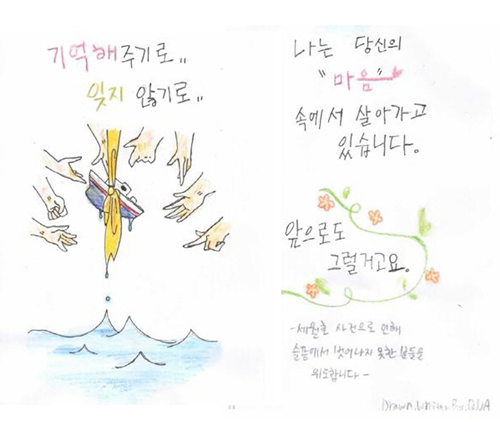 기억해주기로..
잊지 않기로..
나는 당신의
"마음"
속에서 살아가고
있습니다.
앞으로도
그럴거고요.
-세월호 사건으로 인해
슬픔에서 벗어나지 못한 분들을
위로합니다-
Drawn.